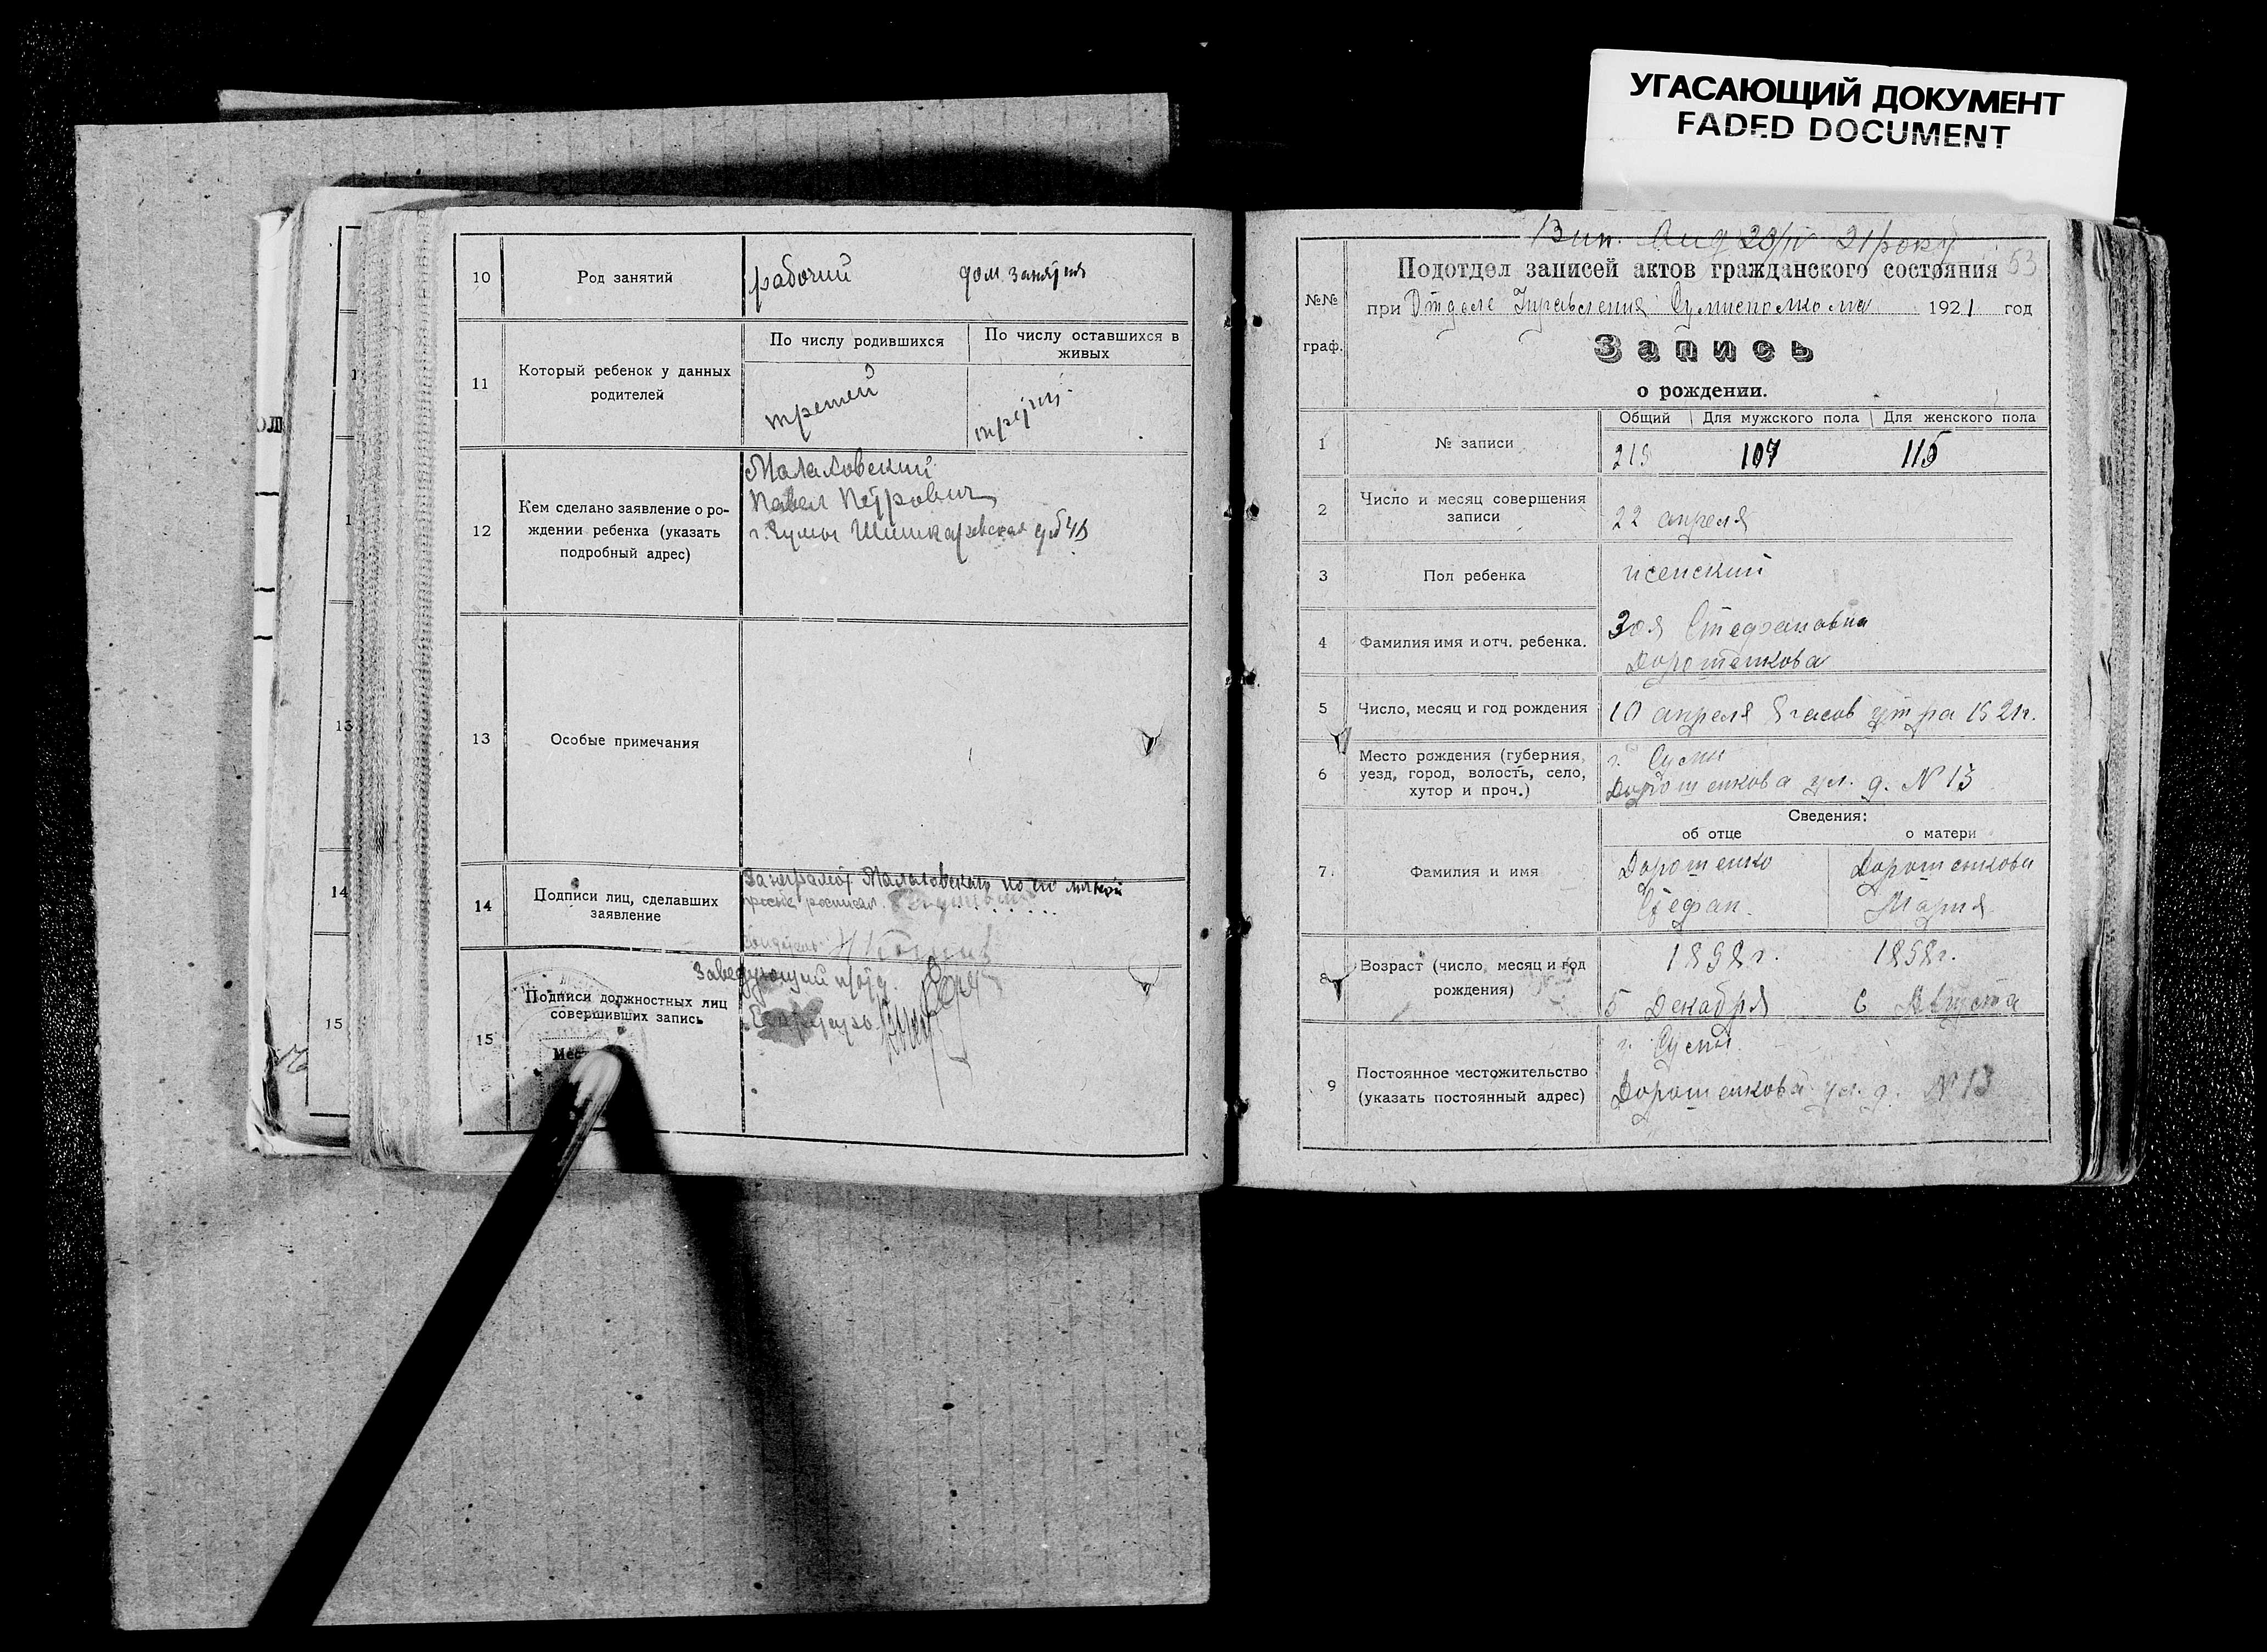 УГАСАЮЩИЙ ДОКУМЕНТ
FADED DOCUMENT
10
Род занятий
рабочий
дом. занятия
11
Который ребенок у данных
родителей
По числу родившихся
По числу оставшихся в
живых
третий
третий
12
Кем сделано заявление о ро-
ждении ребенка (указать
подробный адрес)
Малаховский
Павел Петрович
г. Сумы Шишкаревская
13
Особые примечания
14
Подписи лиц, сделавших
заявление
За неграмот. Малаховского по его личной
15
Подписи должностных лиц
совершивших запись
Мес
Заведующий п/отд.
13
14
15
53
№№
граф.
Подотдел записей актов гражданского состояния
при Отделе Управления Сумисполкома 1921 год
Запись
о рождении.
1
№ записи
Общий
Для мужского пола
Для женского пола
107
115
2
Число и месяц совершения
записи
22 апреля
3
Пол ребенка
женский
4
Фамилия имя и отч. ребенка.
Зоя Стефановна
Дорошенкова
5
Число, месяц и год рождения
10 апреля 8 часов утра 1921г.
6
Место рождения (губерния,
уезд, город, волость, село,
хутор и проч.)
г. Сумы
Дорошенкова ул. д. № 13
7
Фамилия и имя
Сведения:
об отце
о матери
Дорошенко
Стефан.
Дорошенкова
Мария
8
Возраст (число, месяц и год
рождения)
1898г.
5 Декабря
1898г.
6 Августа
9
Постоянное местожительство
(указать постоянный адрес)
г. Сумы
Дорошенкова ул. д. № 13